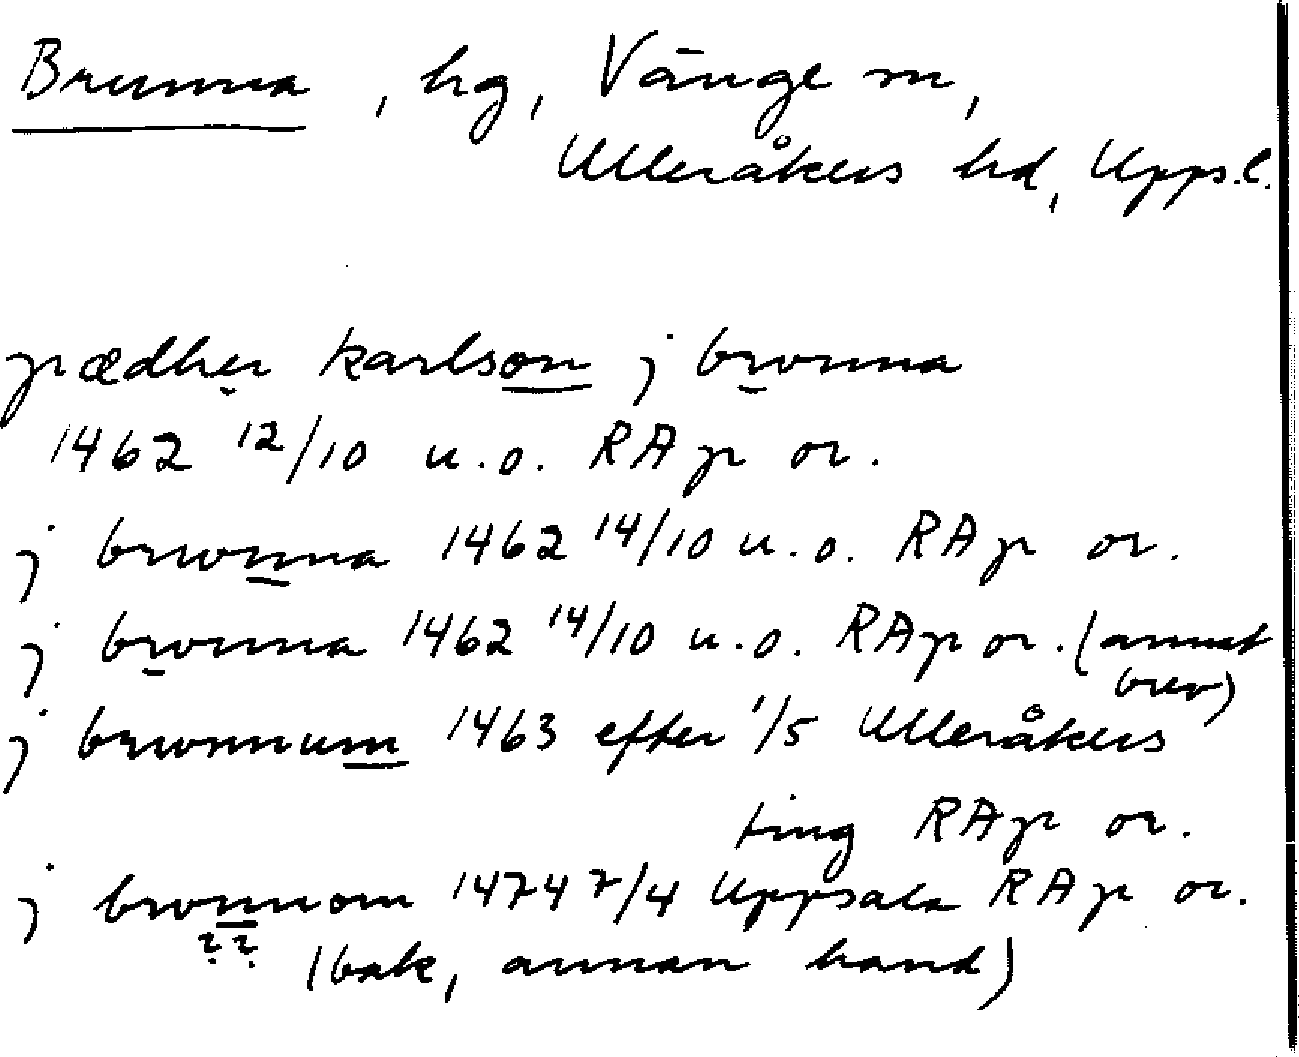 Brunna, hg, Vänge sn,
Ulleråkers hd, Uppsl.
pædher karlson j brvnna
1462 12/10 u.o. RAp or.
j brwnna 1462 14/10 u.o. RAp or.
j brvnna 1462 14/10 u.o. RAp or. (annat
brev)
j brwnnum 1463 efter 1/5 Ulleråkers
ting RAp or.
j brvnnom 1474 7/4 Uppsala RAp or.
?? (bak, annan hand)